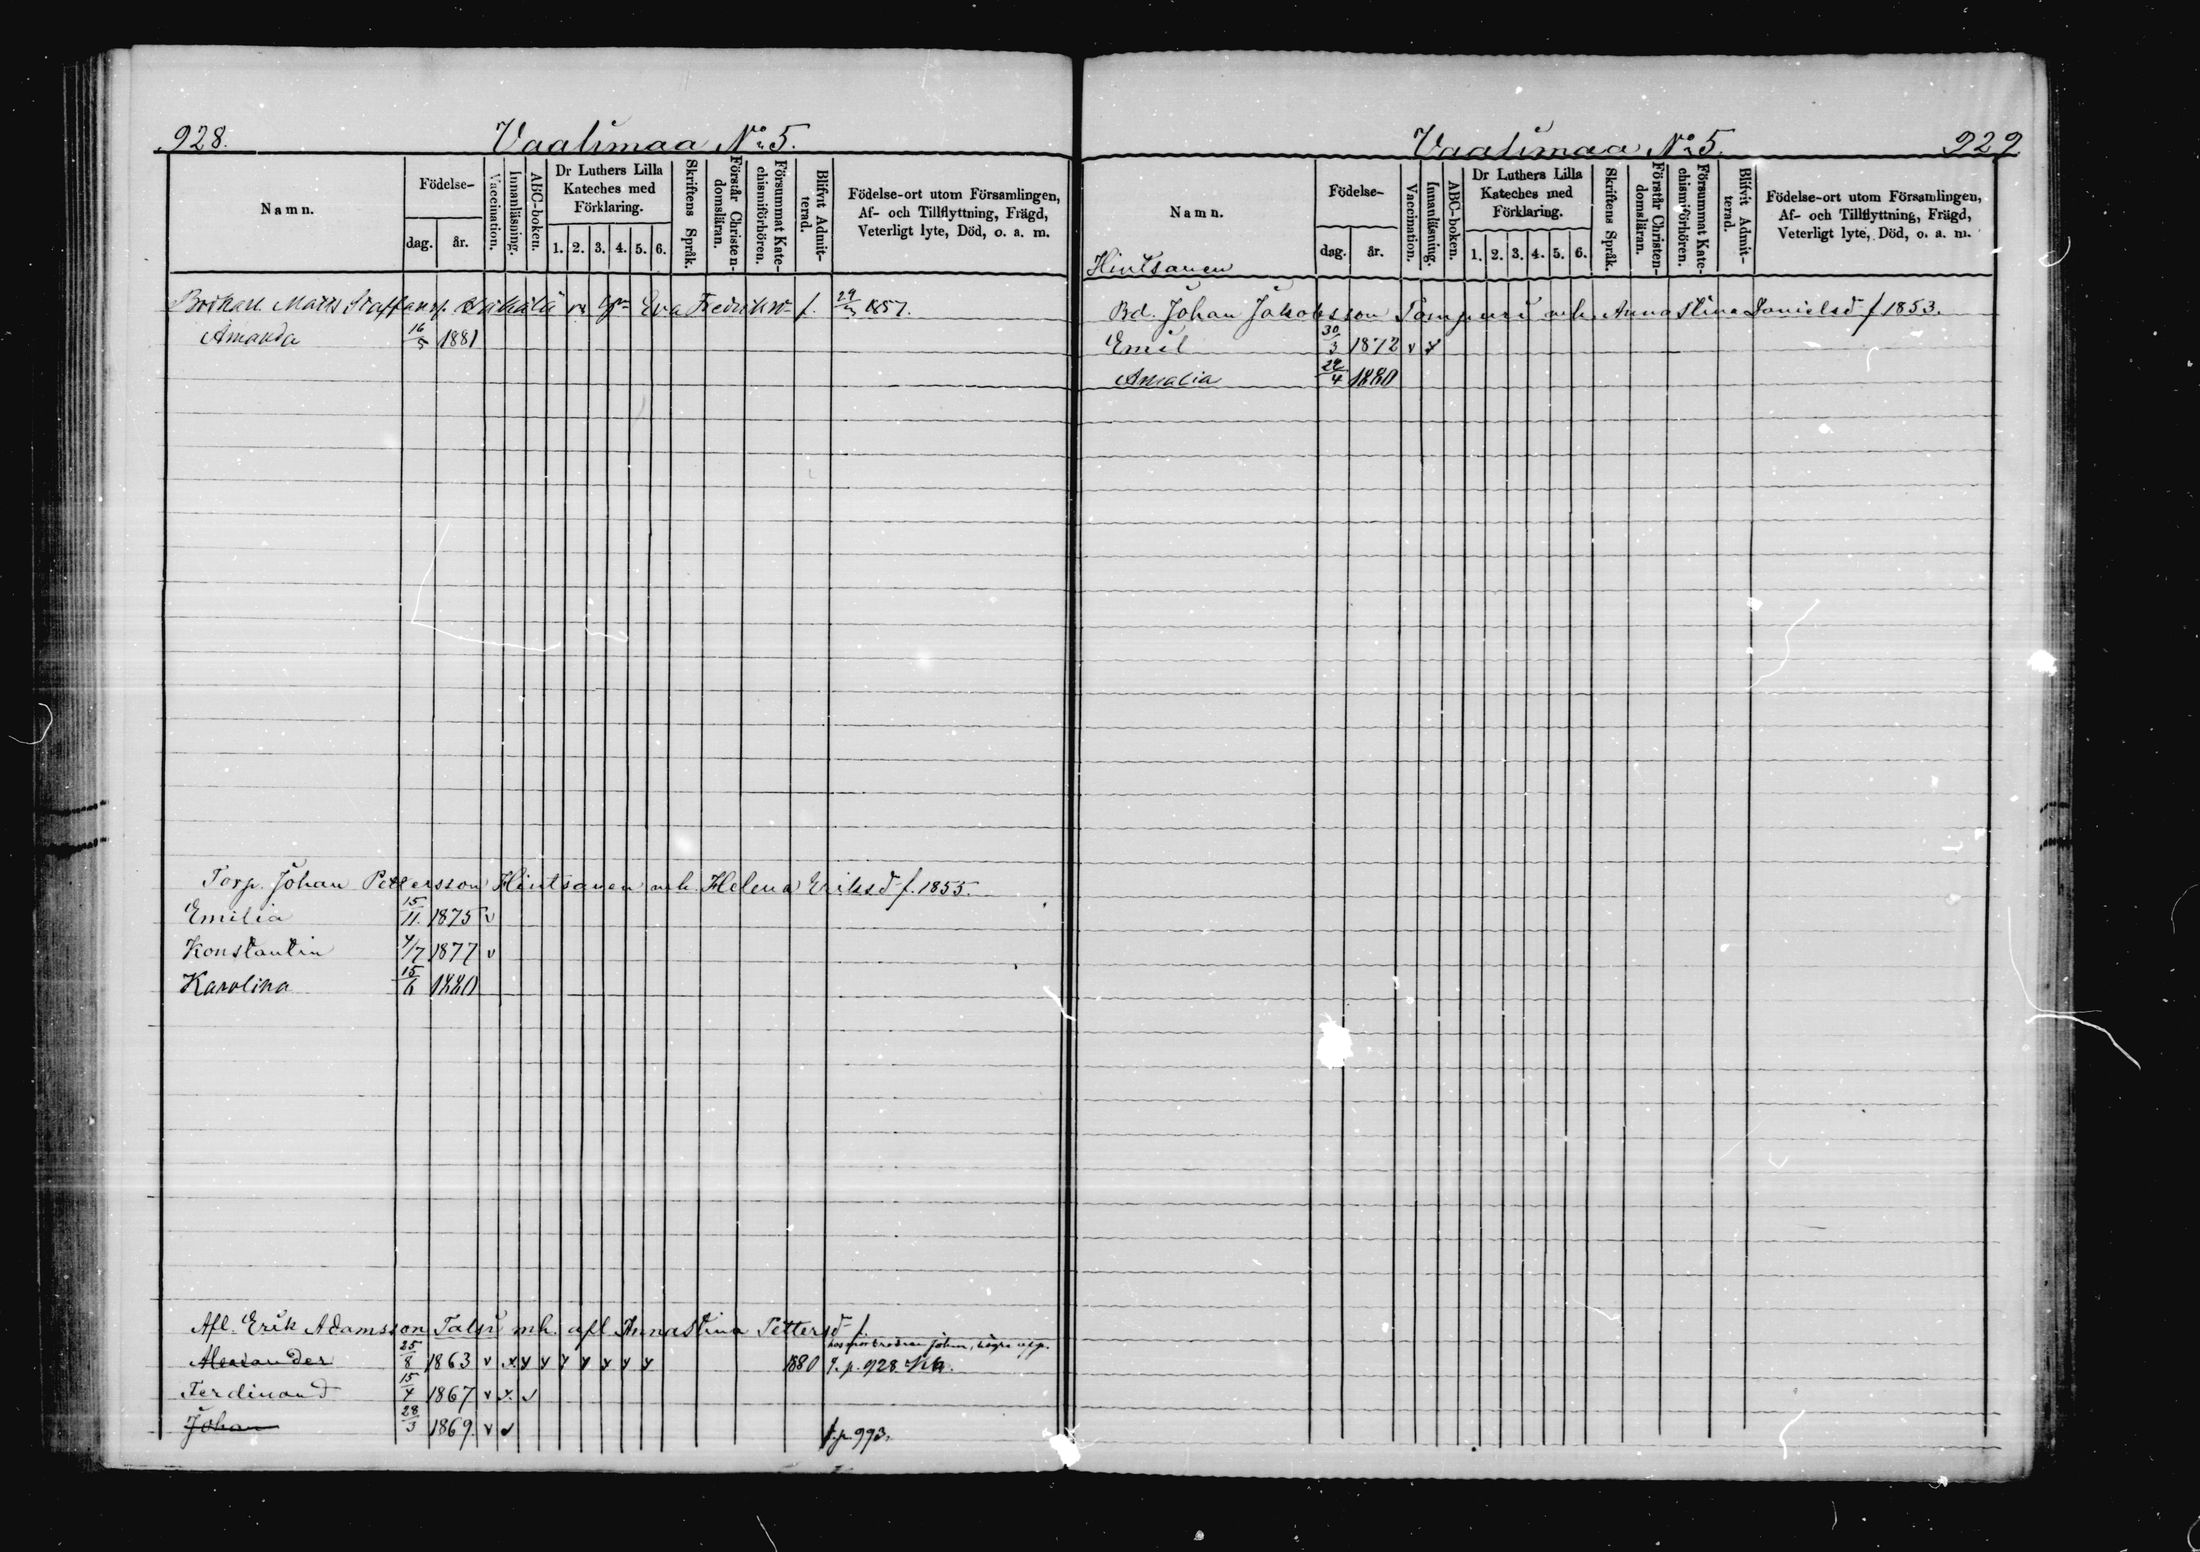 928.
Vaalimaa No 5.
Namn.
Födelse-
dag.
år.
Vaccination.
Innanläsning.
ABC-boken.
Dr Luthers Lilla
Kateches med
Förklaring.
1. 2. 3. 4. 5. 6.
Skriftens Språk.
Förstår Christen-
domsläran.
Försummat Kate-
chismiförhören.
Blifvit Admit-
terad.
Födelse-ort utom Församlingen,
Af- och Tillflyttning, Frägd,
Veterligt lyte, Död, o. a. m.
Matts Eva f. 1857.
Amanda 16/5 1881
Torp. Johan Pettersson Hintsanen m.h. Helena Eriksd f. 1855.
Emilia 15/11. 1875 v
Konstantin 4/7 1877 v
Karolina 15/6 1880
Afl. Erik Adamsson Talsi m.h. afl. Anna Stina Pettersd f.
Alexander 25/8 1863 v x y y y y y y y 1880 f. p. 928
Ferdinand 15/4 1867 v x v
Johan 28/3 1869 v v f. p. 993.
Vaalimaa No 5.
929
Namn.
Hintsanen
Födelse-
dag.
år.
Vaccination.
Innanläsning.
ABC-boken.
Dr Luthers Lilla
Kateches med
Förklaring.
1. 2. 3. 4. 5. 6.
Skriftens Språk.
Förstår Christen-
domsläran.
Försummat Kate-
chismiförhören.
Blifvit Admit-
terad.
Födelse-ort utom Församlingen,
Af- och Tillflyttning, Frägd,
Veterligt lyte, Död, o. a. m.
Bd. Johan Jakobsson Tompuri m.h. Anna Stina Danielsd f 1853.
Emil 30/3 1872 v x
Amalia 24/4 1880